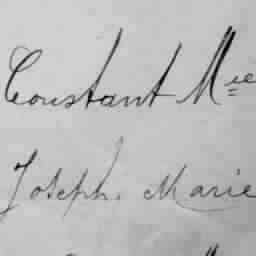 Constant Mie
Joseph. Marie